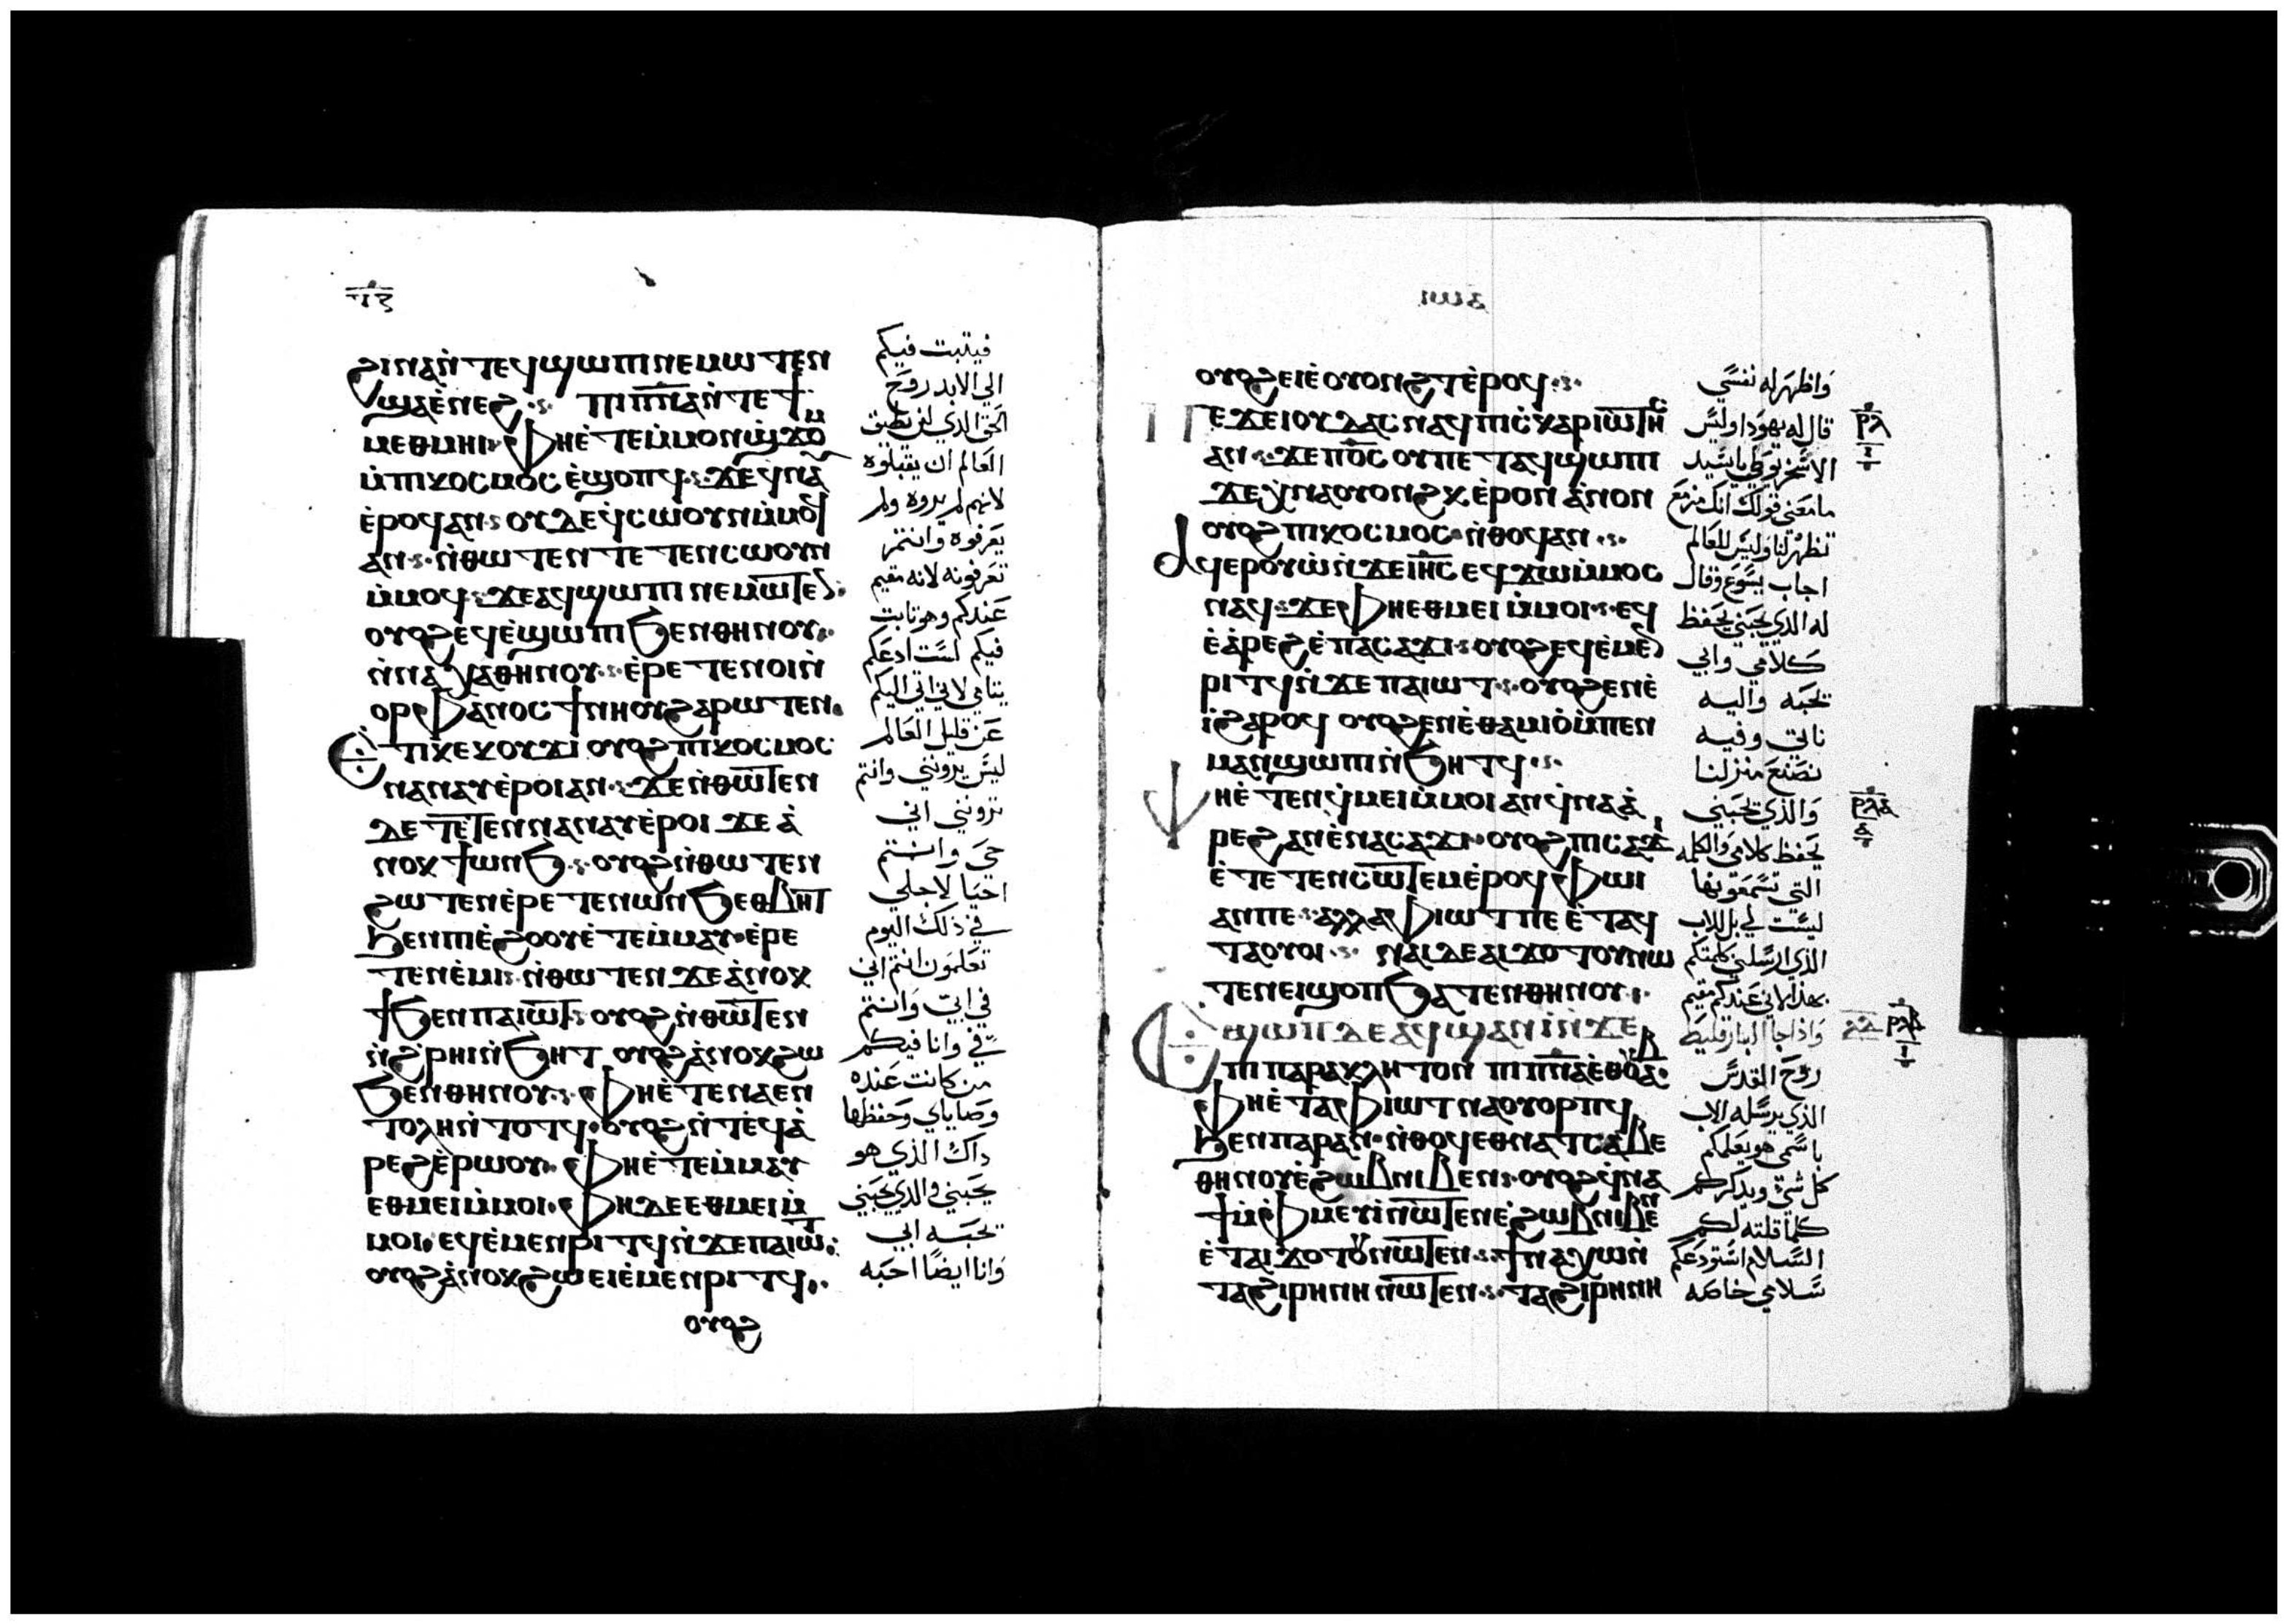 ϩⲓⲛⲁⲛ̀ⲧⲉϥϣⲱⲡⲓⲛⲉⲙⲱⲧⲉⲛ
ϣⲁⲉ̀ⲛⲉϩ ⲡⲓⲡ̅ⲛ̅ⲁ̅ⲛ̀ⲧⲉϯ
ⲙⲉⲑⲙⲏⲓ ⲫⲏⲉ̀ⲧⲉⲙ̀ⲙⲟⲛϣϫⲟ̅
ⲙ̀ⲡⲓⲕⲟⲥⲙⲟⲥ ⲉ̀ϣⲟⲡϥ ϫⲉϥⲛⲁ
ⲉ̀ⲣⲟϥⲁⲛ ⲟⲩⲇⲉϥ̀ⲥⲱⲟⲩⲛⲙ̀ⲙⲟϥ
ⲁⲛ ⲛ̀ⲑⲱⲧⲉⲛⲧⲉⲧⲉⲛⲥⲱⲟⲩⲛ
ⲙ̀ⲙⲟϥ ϫⲉⲁϥϣⲱⲡⲓⲛⲉⲙⲱⲧⲉ
ⲟⲩⲟϩⲉϥⲉ̀ϣⲱⲡⲓϧⲉⲛⲑⲏⲛⲟⲩ
ⲛ̀ⲛⲁⲭⲁⲑⲏⲛⲟⲩ ⲉ̀ⲣⲉⲧⲉⲛⲟⲓⲛ̀
ⲟⲣⲫⲁⲛⲟⲥϯⲛⲏⲟⲩϩⲁⲣⲱⲧⲉⲛ
ⲉⲧⲓⲕⲉⲕⲟⲩϫⲓ ⲟⲩⲟϩⲡⲓⲕⲟⲥⲙⲟⲥ
ⲛⲁⲛⲁⲩⲉ̀ⲣⲟⲓⲁⲛ ϫⲉⲛ̀ⲑⲱⲧⲉⲛ
ⲇⲉⲧⲉⲧⲉⲛⲛⲁⲛⲁⲩⲉ̀ⲣⲟⲓ ϫⲉⲁ̀
ⲛⲟⲕϯⲱⲛϧ ⲟⲩⲟϩⲛ̀ⲑⲱⲧⲉⲛ
ϩⲱⲧⲉⲛⲉ̀ⲣⲉⲧⲉⲛⲱⲛϧⲉⲑⲃⲏⲧ
ϧⲉⲛⲡⲓⲉ̀ϩⲟⲟⲩⲉ̀ⲧⲉⲙ̀ⲙⲁⲩ ⲉ̀ⲣⲉ
ⲧⲉⲛⲉ̀ⲙⲓ ⲛ̀ⲑⲱⲧⲉⲛ ϫⲉⲁ̀ⲛⲟⲕ
ϯϧⲉⲛⲡⲁⲓⲱⲧ ⲟⲩⲟϩⲛ̀ⲑⲱⲧⲉⲛ
ⲛ̀ϩ̀ⲣⲏⲓⲛ̀ϧⲏⲧ ⲟⲩⲟϩⲁ̀ⲛⲟⲕϩⲱ
ϧⲉⲛⲑⲏⲛⲟⲩ ⲫⲏⲉ̀ⲧⲉⲛⲁⲉⲛ
ⲧⲟⲗⲏⲛ̀ⲧⲟⲧϥ ⲟⲩⲟϩⲛ̀ⲧⲉϥⲁ̀
ⲣⲉϩⲉ̀ⲣⲱⲟⲩ ⲫⲏⲉ̀ⲧⲉⲙ̀ⲙⲁⲩ
ⲉⲑⲙⲉⲓⲙ̀ⲙⲟⲓ ⲫⲏⲇⲉⲉⲑⲙⲉⲓⲙ̀
ⲙⲟⲓ ⲉϥⲉ̀ⲙⲉⲛⲣⲓⲧϥⲛ̀ϫⲉⲡⲁⲓⲱⲧ
ⲟⲩⲟϩⲁ̀ⲛⲟⲕϩⲱⲉⲓⲉ̀ⲙⲉⲛⲣⲓⲧϥ
ⲟⲩⲟϩ
فيثبت فيكم
الي الابد روح
الحق الدي لن يطيق
العالم ان يقبلوه
لانهم لم يروه ولم
يعرفوه وانتم
تعرفونه لانه مقيم
عندكم وهو ثابت
فيكم لست ادعكم
يتامي لاني اتي اليكم
عن قليل العالم
ليس يرونني وانتم
ترونني اني
حي وانتم
احيا لاجلي
في ذلك اليوم
تعلمون انتم اني
في ابي وانتم
في وانا فيكم
من كانت عنده
وصاياي وحفظها
داك الذي هو
يحبني والدي يحبني
يحبه ابي
وانا ايضًا احبه
ⲟⲩⲟϩⲉⲓⲉ̀ⲟⲩⲟⲛϩⲧⲉ̀ⲣⲟϥ
ⲡⲉϫⲉⲓⲟⲩⲇⲁⲥⲛⲁϥⲡⲓⲥⲕⲁⲣⲓⲱⲧⲏⲥ
ⲁⲛ ϫⲉⲡ⳪ ⲟⲩⲡⲉⲧⲁϥϣⲱⲡⲓ
ϫⲉⲭ̀ⲛⲁⲟⲩⲟⲛϩⲕ ⲉ̀ⲣⲟⲛ ⲁ̀ⲛⲟⲛ
ⲟⲩⲟϩⲡⲓⲕⲟⲥⲙⲟⲥ ⲛ̀ⲑⲟϥⲁⲛ
ⲁϥⲉⲣⲟⲩⲱ̀ⲛ̀ϫⲉⲓⲏ̅ⲥ̅ ⲉϥϫⲱⲙ̀ⲙⲟⲥ
ⲛⲁϥ ϫⲉⲫⲏⲉⲑⲙⲉⲓⲙ̀ⲙⲟⲓ ⲉϥ
ⲉ̀ⲁ̀ⲣⲉϩⲉ̀ⲡⲁⲥⲁϫⲓ ⲟⲩⲟϩⲉϥⲉ̀ⲙⲉ
ⲣⲓⲧϥⲛ̀ϫⲉⲡⲁⲓⲱⲧ ⲟⲩⲟϩⲉⲛⲉ̀
ⲓ̀ϩⲁⲣⲟϥ ⲟⲩⲟϩⲉⲛⲉ̀ⲑⲁⲙⲓⲟ̀ⲙ̀ⲡⲉⲛ
ⲙⲁⲛϣⲱⲡⲓⲛ̀ϧⲏⲧϥ
ⲫⲏⲉ̀ⲧⲉⲛϥ̀ⲙⲉⲓⲙ̀ⲙⲟⲓⲁⲛϥ̀ⲛⲁⲁ̀
ⲣⲉϩⲁⲛⲉ̀ⲛⲁⲥⲁϫⲓ ⲟⲩⲟϩⲡⲓⲥⲁϫⲓ
ⲉ̀ⲧⲉⲧⲉⲛⲥⲱⲧⲉⲙⲉ̀ⲣⲟϥ ⲫⲱⲓ
ⲁⲛⲡⲉ ⲁⲗⲗⲁⲫⲓⲱⲧⲡⲉⲉ̀ⲧⲁϥ
ⲧⲁⲟⲩⲟⲓ ⲛⲁⲓⲇⲉⲁⲓϫⲟⲧⲟⲩⲛⲱ
ⲧⲉⲛⲉⲓϣⲟⲡϧⲁⲧⲉⲛⲑⲏⲛⲟⲩ
ⲉϣⲱⲡⲇⲉⲁϥϣⲁⲛⲓ̀ⲛ̀ϫⲉ
ⲡⲓⲡⲁⲣⲁⲕⲗⲏⲧⲟⲛ ⲡⲓⲡ̅ⲛ̅ⲁ̅ⲉⲑⲟⲩⲁⲃ
ⲫⲏⲉ̀ⲧⲁⲫⲓⲱⲧⲛⲁⲟⲩⲟⲣⲡϥ
ϧⲉⲛⲡⲁⲣⲁⲛ ⲛ̀ⲑⲟϥⲉⲑⲛⲁⲧⲥⲁⲃⲉ
ⲑⲏⲛⲟⲩⲉ̀ϩⲱⲃⲛⲓⲃⲉⲛ ⲟⲩⲟϩϥ̀ⲛⲁ
ϯⲙ̀ⲫⲙⲉⲩⲓ̀ⲛⲱⲧⲉⲛⲉ̀ϩⲱⲃⲛⲓⲃⲉⲛ
ⲉ̀ⲧⲁⲓϫⲟⲧⲟⲩⲛⲱⲧⲉⲛ ϯⲛⲁⲭⲱⲛ̀
ⲧⲁϩⲓⲣⲏⲛⲏⲛⲱⲧⲉⲛ ⲧⲁϩⲓⲣⲏⲛⲏ
واظهر له نفسي
قال له يهودا وليس
الاسخريوطي يا سيد
ما معني قولك انك مزمع
تظهر لنا وليس للعالم
اجاب يسوع وقال
له الذي يحبني يحفظ
كلامي وابي
يحبه واليه
ناتي وفيه
نصنع منزلنا
والذي يحبني
يحفظ كلامي والكلمه
التي تسمعونها
ليست لي بل للاب
الذي ارسلني كلمتكم
بهذا لاني عندكم مقيم
واذا جا البارقليط
روح القدس
الذي يرسله الاب
باسمي هو يعلمكم
كل شي ويذكركم
كلما قلته لكم
السلام استودعكم
سلامي خاصه
ⲣⲗ
ⲣⲗⲁ
ⲣⲗⲃ